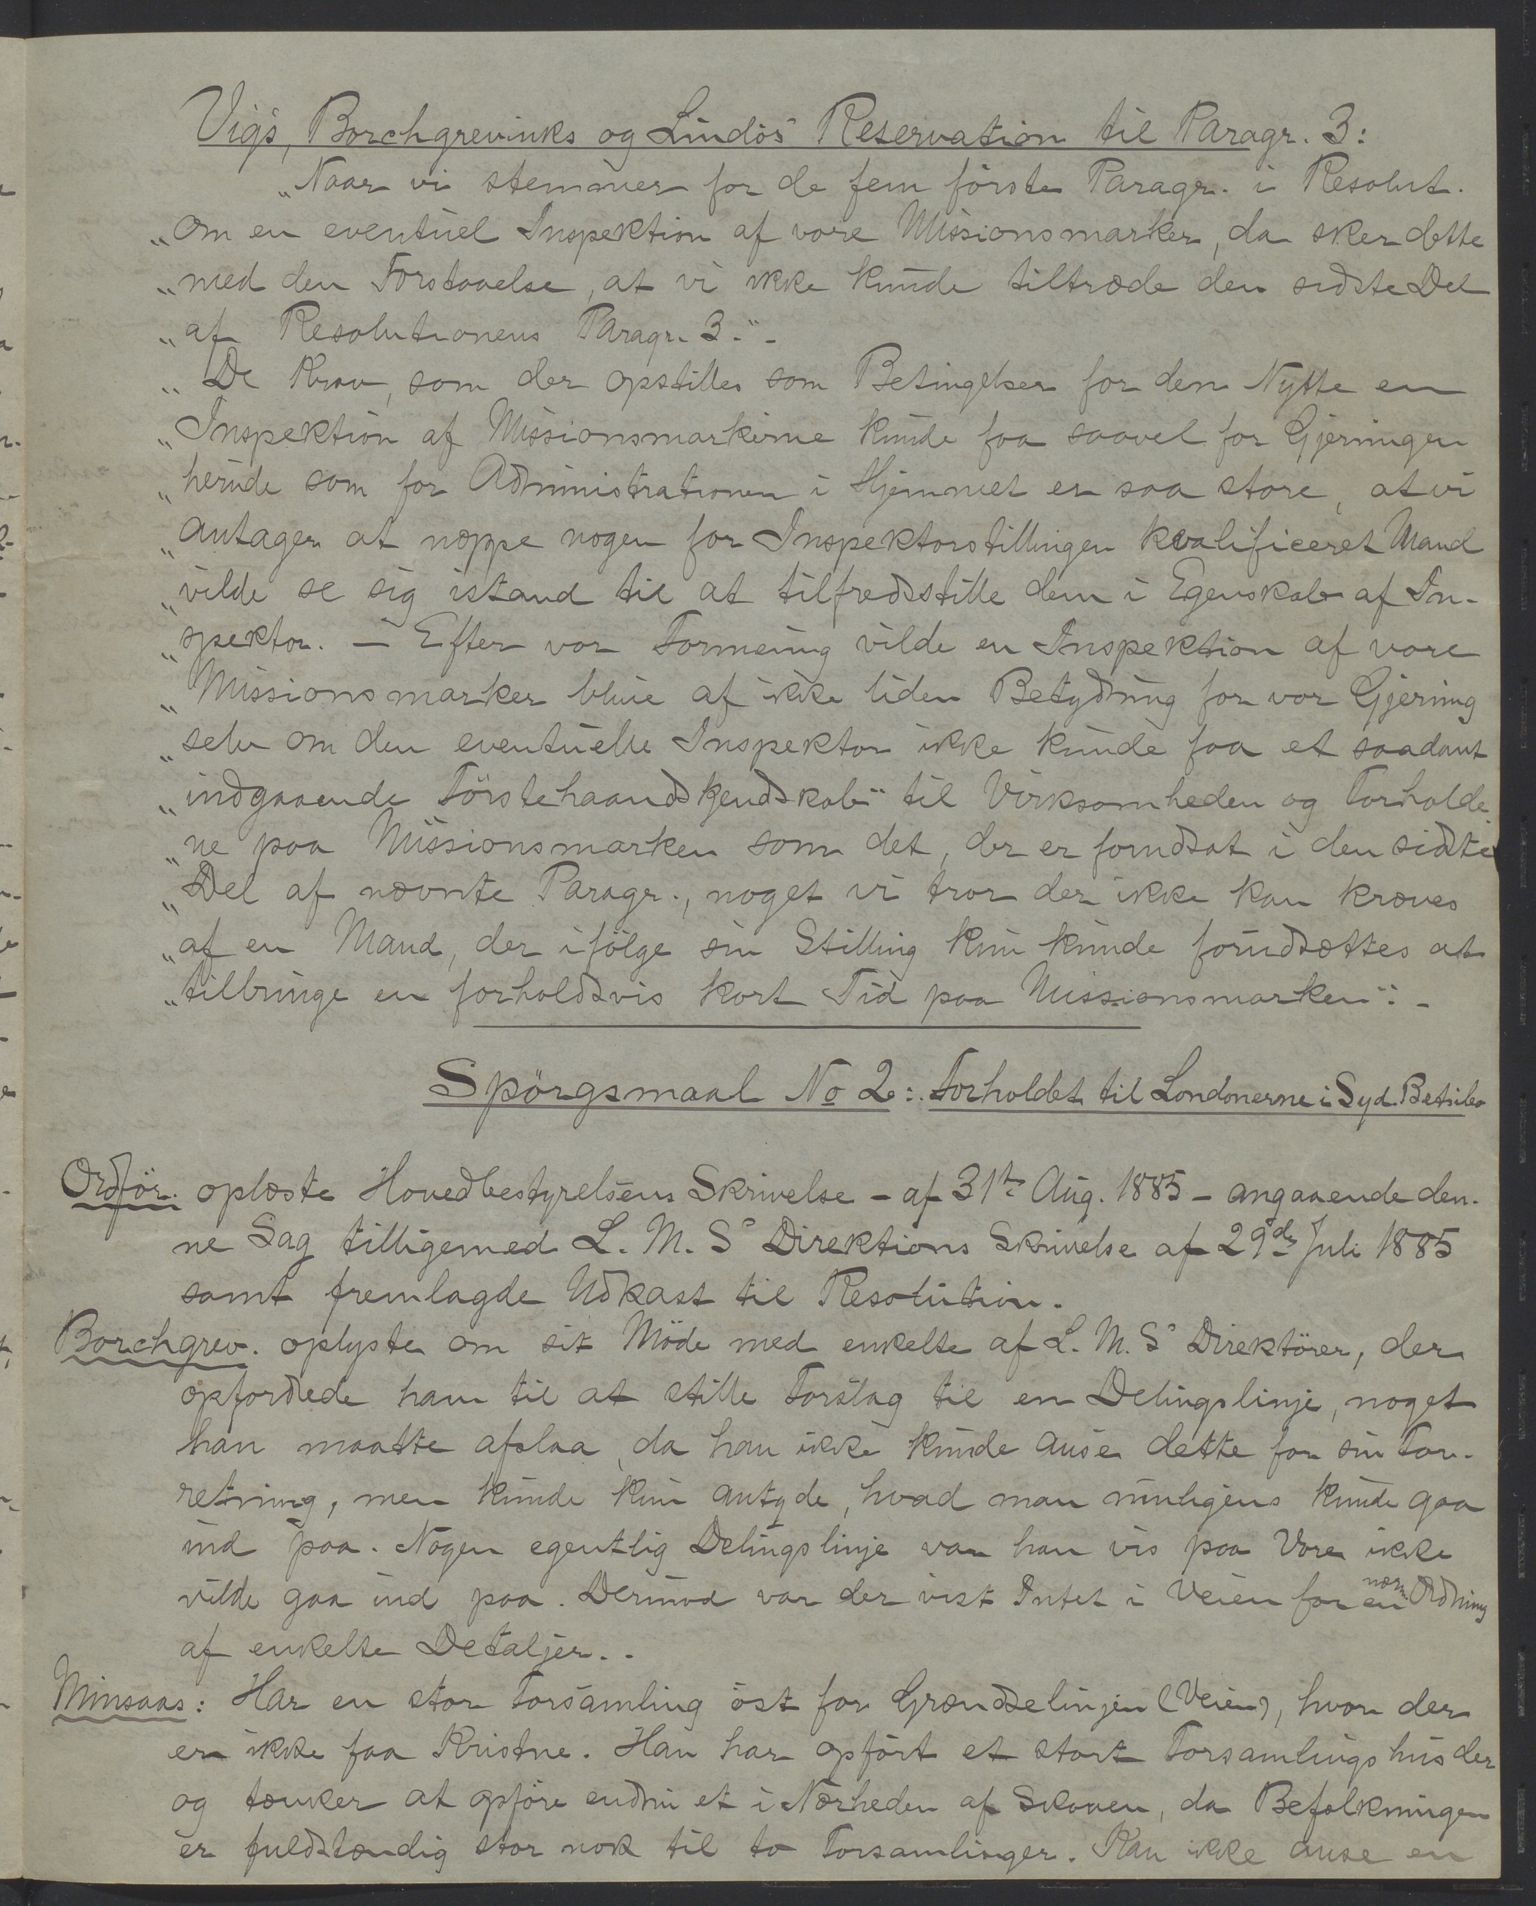 Vigs, Borchgrevinks og Lindös Reservation til Paragr. 3:
„Naar vi stemmer for de fem förste Paragr. i Resolut.
„om en eventuel Inspektion af vore Missionsmarker, da sker dette
„med den Forstaaelse, at vi ikke kunde tiltræde den sidste Del
„af Resolutionens Paragr. 3." -
„De Krav, som der opstilles som Betingelser for den Nytte en
„Inspektion af Missionsmarkerne kunde faa saavel for Gjerningen
„herude som for Administrationen i Hjemmet er saa store, at vi
„antager at næppe nogen for Inspektorstillingen kvalificeret Mand
„vilde se sig istand til at tilfredsstille dem i Egenskab af In-
„spektor. — Efter vor Formening vilde en Inspektion af vore
„Missionsmarker blive af ikke liden Betydning for vor Gjerning
„selv om den eventuelle Inspektor ikke kunde faa et saadant
„indgaaende Förstehaandskjendskab" til Virksomheden og Forholde-
„ne paa Missionsmarken som det, der er forudsat i den sidste
„Del af nævnte Paragr., noget vi tror der ikke kan kræves
„af en Mand, der ifölge sin Stilling kun kunde forudsættes at
„tilbringe en forholdsvis kort Tid paa Missionsmarken": -
Spörgsmaal No 2: Forholdet til Londonerne i Syd. Betsileo
Ordför. oplæste Hovedbestyrelsens Skrivelse - af 31te Aug. 1885 - angaaende den-
ne Sag tilligemed L. M. S's Direktions Skrivelse af 29de Juli 1885
samt fremlagde Udkast til Resolution.
Borchgrev. oplyste om sit Möde med enkelte af L. M. S's Direktörer, der
opfordrede ham til at stille Forslag til en Delingslinje, noget
han maatte afslaa, da han ikke kunde anse dette for sin For-
retning, men kunde kun antyde, hvad man muligens kunde gaa
ind paa. Nogen egentlig Delingslinje var han vis paa Vore ikke
vilde gaa ind paa. Derimod var der vist Intet i Veien for en nærm. Ordning
af enkelte Detaljer. .
Minsaas: Har en stor Forsamling öst for Grændselinjen (Veien), hvor der
er ikke faa Kristne. Han har opfört et stort Forsamlingshus der
og tænker at opföre endnu et i Nærheden af Skoven, da Befolkningen
er fuldstændig stor nok til to Forsamlinger. Kan ikke anse en